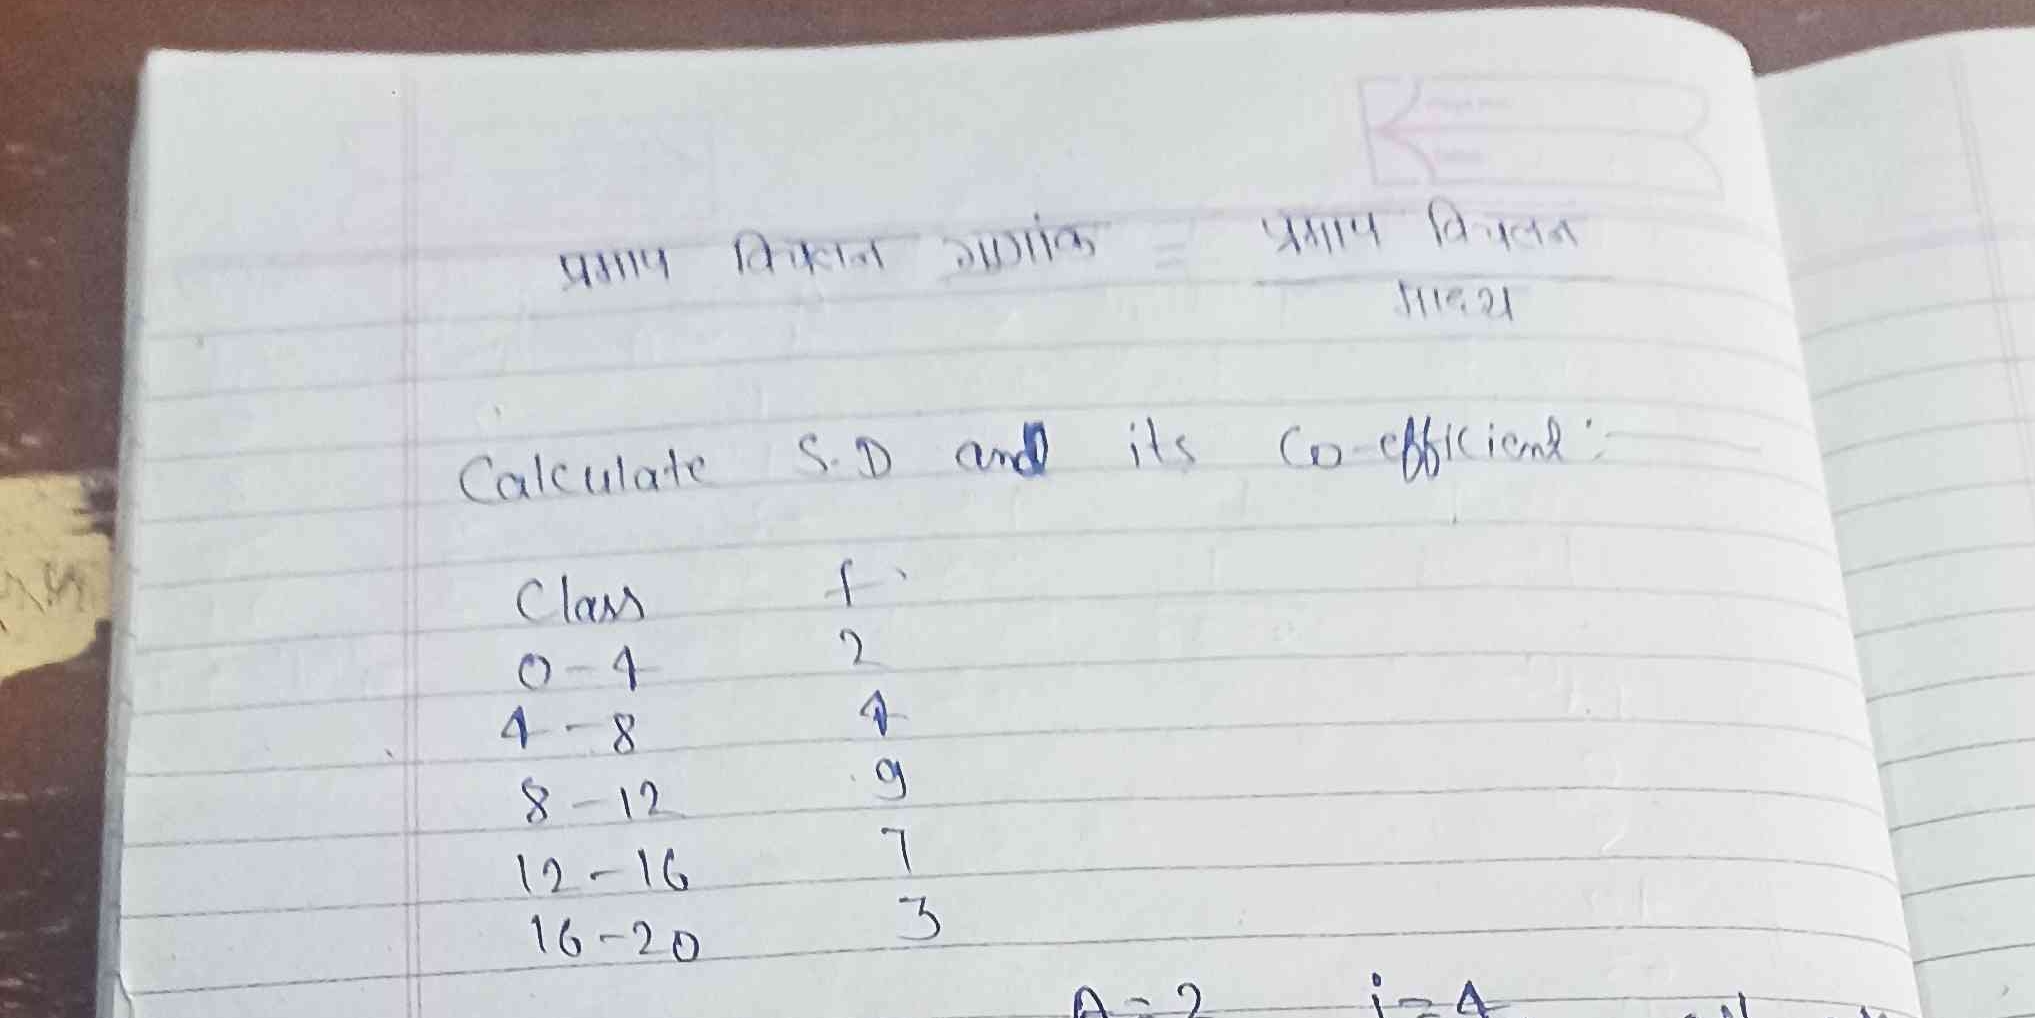 प्रमाप विचलन गुणांक = प्रमाप विचलन
माध्य
Calculate S.D and its Co-efficient :-
Class f
0-4 2
4-8 4
8-12 9
12-16 7
16-20 3
A=2 i=4